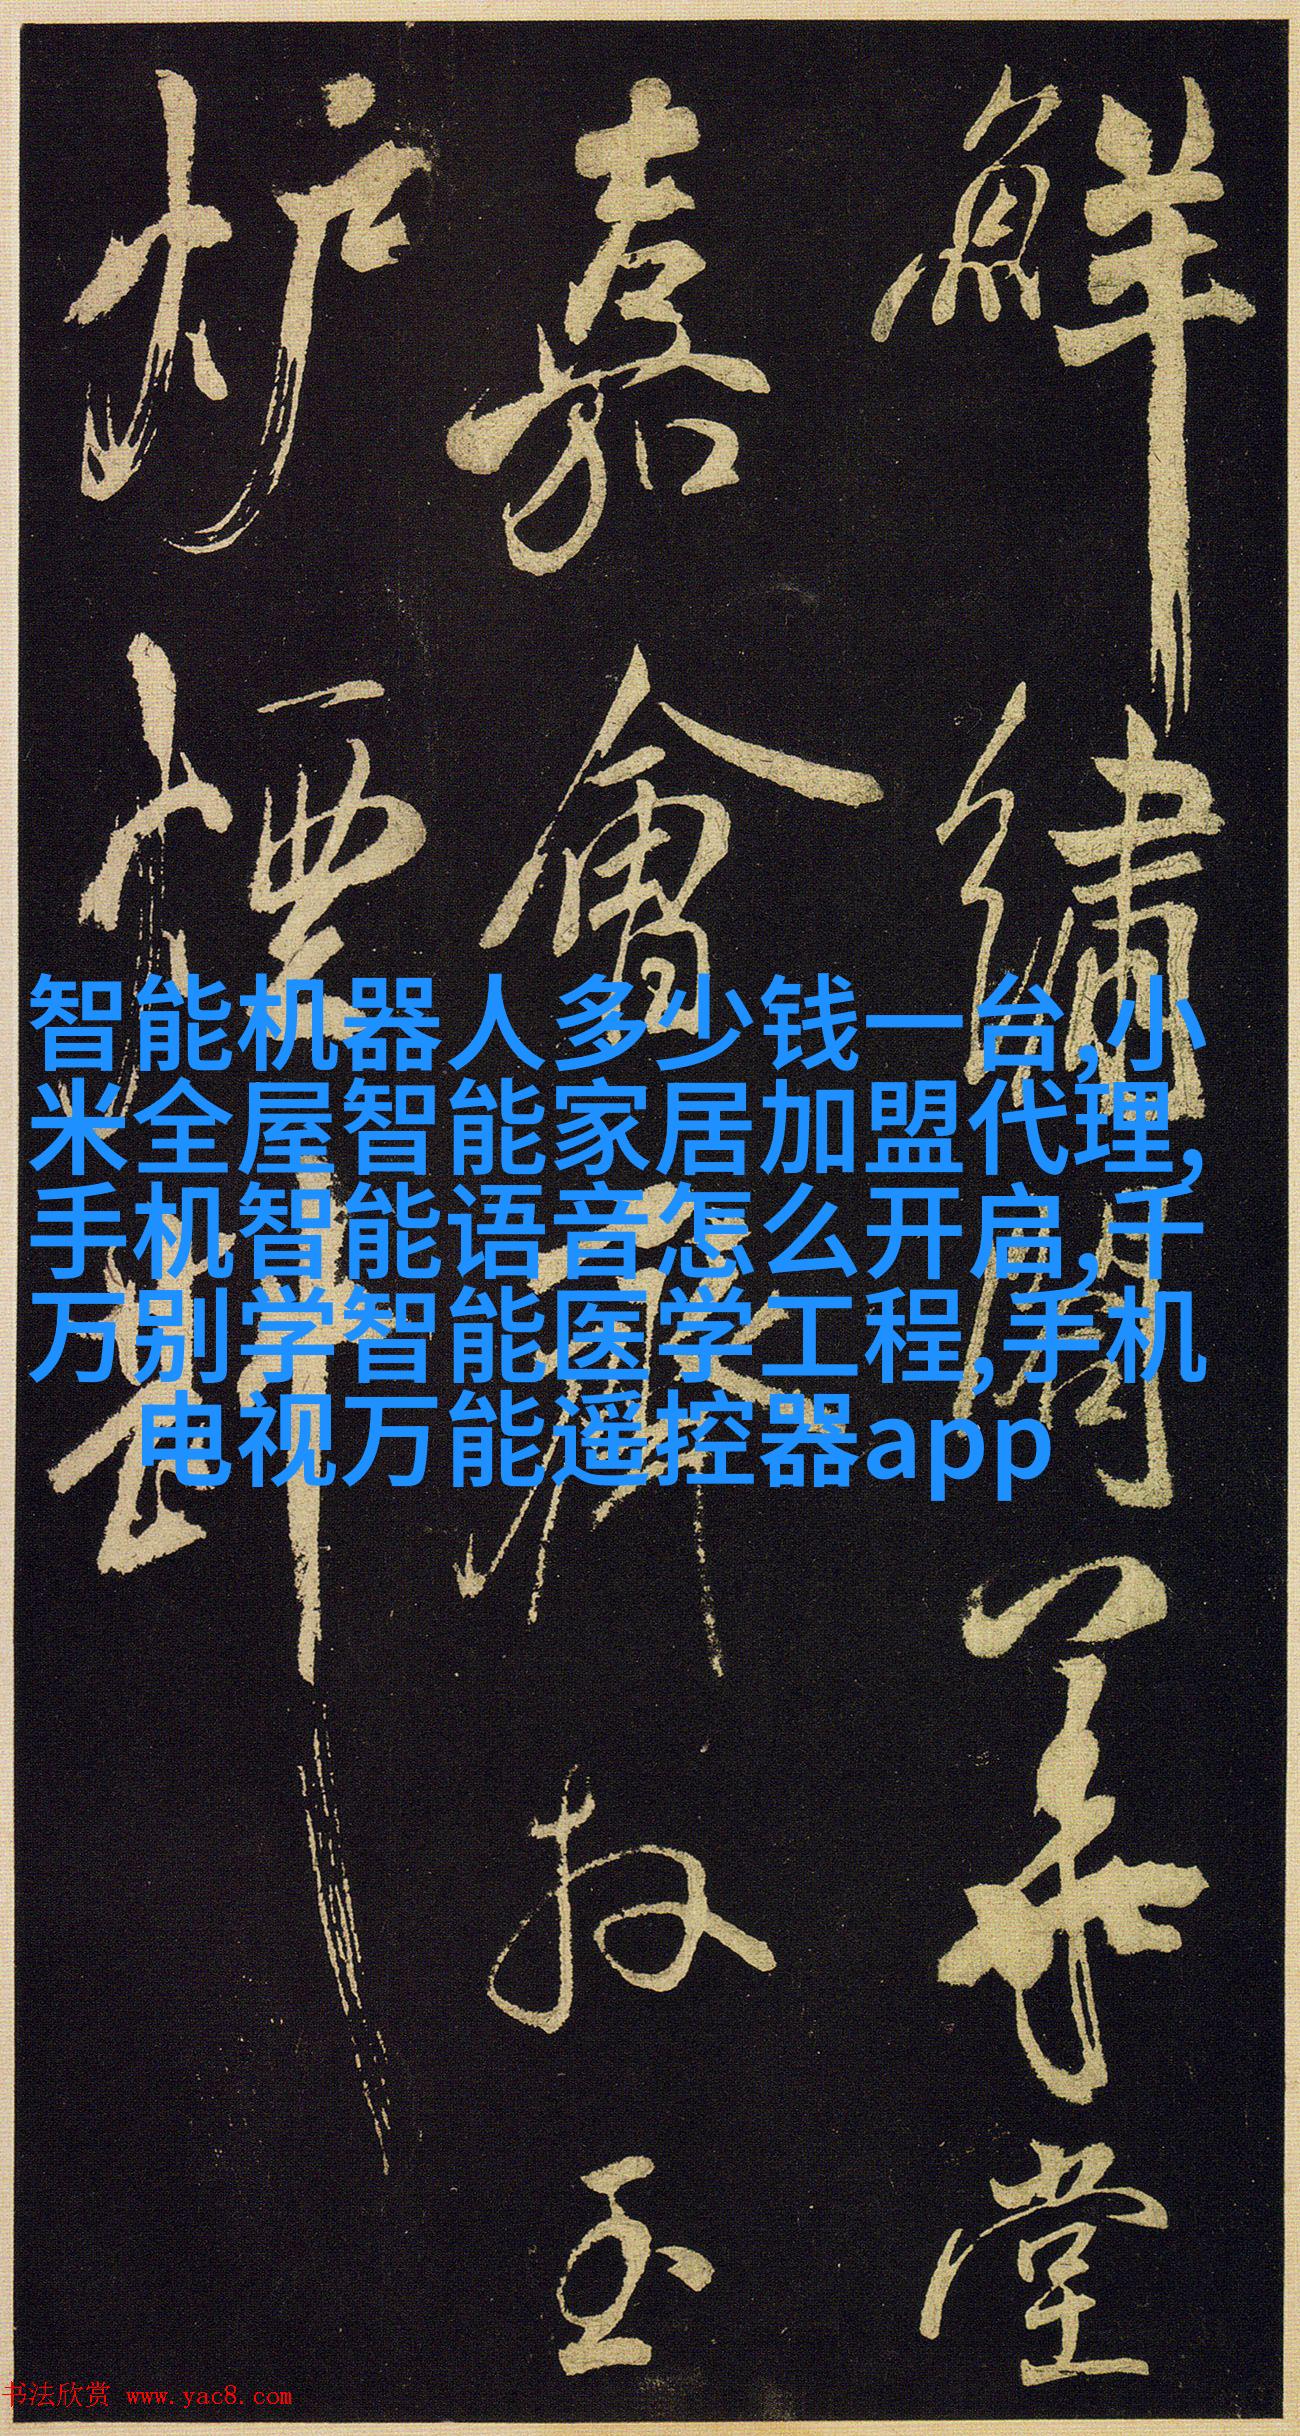 鮮繡閣華堂
嘉會
放玉
炉煙
智能机器人多少钱一台,小
米全屋智能家居加盟代理,
手机智能语音怎么开启,千
万别学智能医学工程,手机
电视万能遥控器app
书法欣赏 www.yac8.com